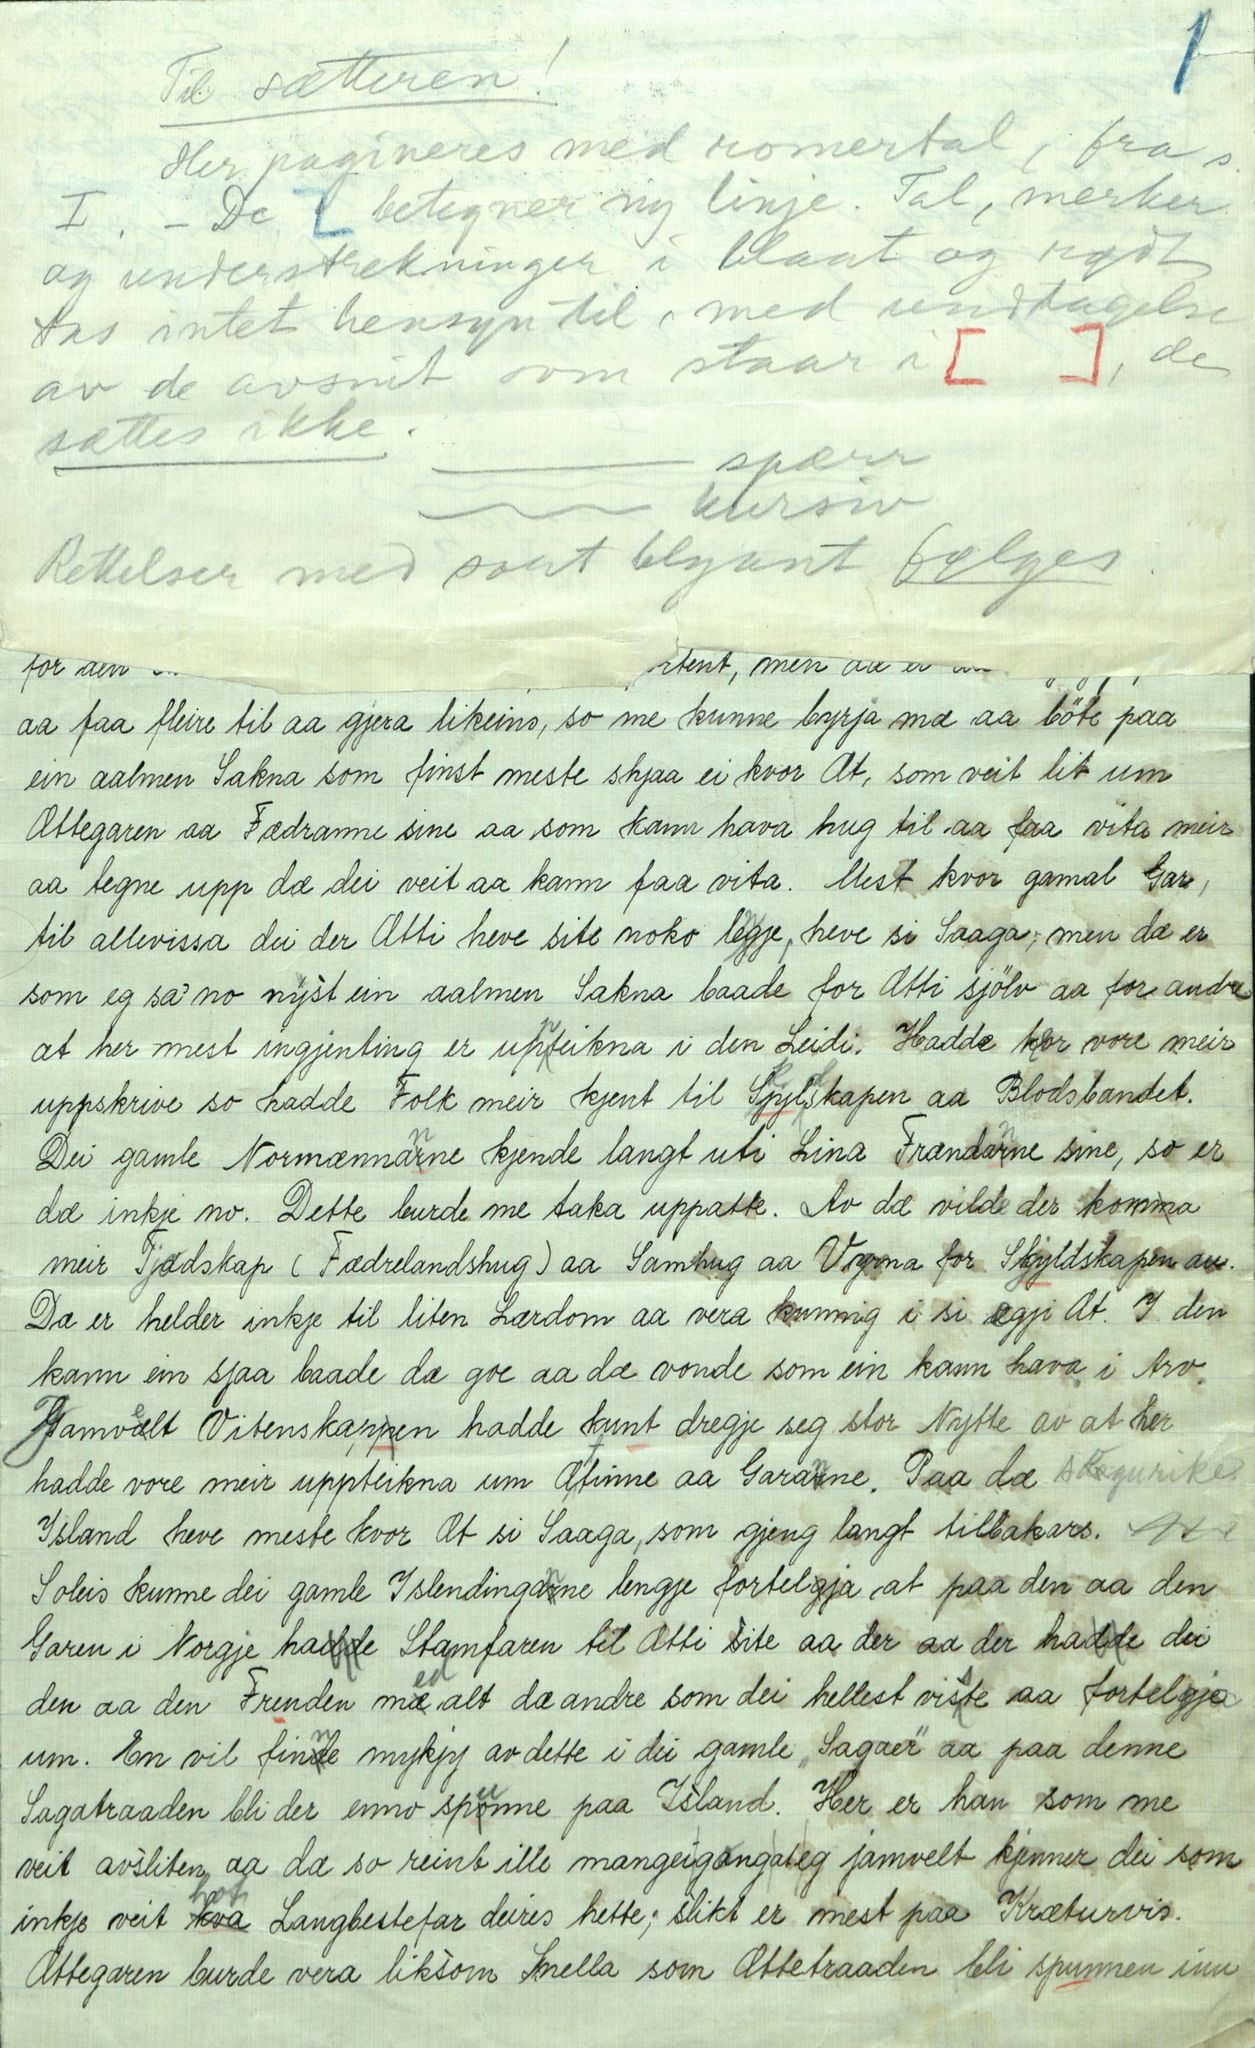 1
Til sætteren!
Her pagineres med romertal, fra s.
I. - De [ betegner ny linje. Tal, merker
og understrekninger i blaat og rødt
tas intet hensyn til, med undtagelse
av de avsnit som staar i [ ], de
sættes ikke.
spærr
kursiv
Rettelser med sort blyant følges.
for den
men dæ er
aa faa fleire til aa gjera likeins, so me kunne byrja mæ aa böte paa
ein aalmen Sakna som finst meste shjaa ei kvor Æt, som veit lit um
Ættegaren aa Fædranne sine aa som kann hava hug til aa faa vita meir
aa tegne upp dæ dei veit aa kann faa vita. Mest kvor gamal Gar,
til allevissa dei der Ætti heve site noko lengje, heve si Saaga; men dæ er
som eg sa' no nyst ein aalmen Sakna baade for Ætti sjölv aa for andre
at her mest ingjenting er uppteikna i den Leidi. Hadde her vore meir
uppskrive so hadde Folk meir kjent til Skyldskapen aa Blodsbandet.
Dei gamle Normænnanne kjende langt uti Lina Frændanne sine, so er
dæ inkje no. Dette burde me taka uppatte. Av dæ vilde der komma
meir Tjødskap (Fædrelandshug) aa Samhug aa Vyrna for Skyldskapen au.
Dæ er helder inkje til liten Lærdom aa vera kunnig i si ægji Æt. I den
kann ein sjaa baade dæ goe aa dæ vonde som ein kann hava i Arv.
Jamvelt Vitenskapen hadde kunt dregje seg stor Nytte av at her
hadde vore meir uppteikna um Ætinne aa Garanne. Paa dæ sogurike
Island heve meste kvor Æt si Saaga, som gjeng langt tilbakars.
Soleis kunne dei gamle Islendinganne lengje fortelja at paa den aa den
Garen i Norgje hadde Stamfaren til Ætti site aa der aa der hadde dei
den aa den Frenden med alt dæ andre som dei hellest visste aa fortelja
um. En vil finne mykjy av dette i dei gamle "Sagaer" aa paa denne
Sagatraaden bli der enno spunne paa Island. Her er han som me
veit avsliten, aa dæ so reint ille mangeigongateg jamvelt kjenner dei som
inkje veit hot Langbestefar deires hette; slikt er mest paa Kræturvis.
Ættegaren burde vera liksom Snella som Ættetraaden bli spunnen inn